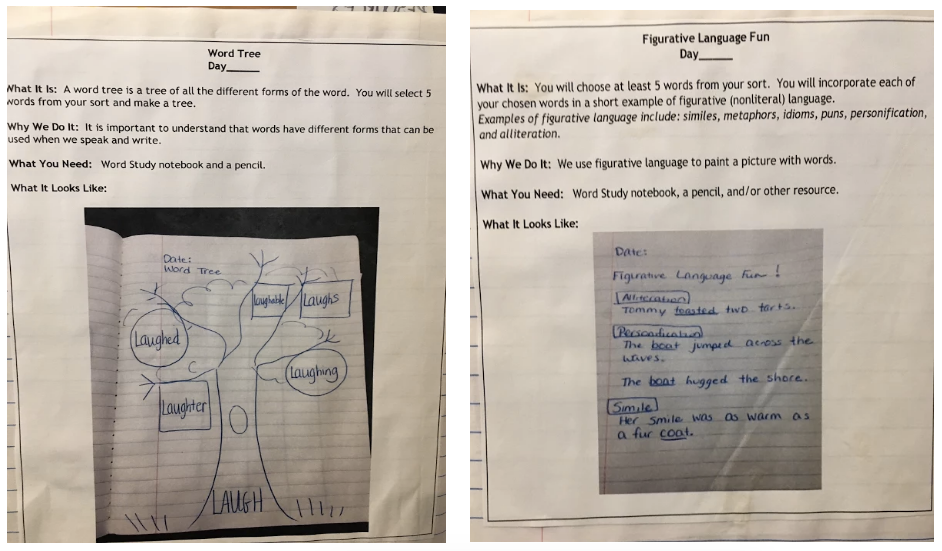 Word Tree
Day_____
What It Is: A word tree is a tree of all the different forms of the word. You will select 5
words from your sort and make a tree.
Why We Do It: It is important to understand that words have different forms that can be
used when we speak and write.
What You Need: Word Study notebook and a pencil.
What It Looks Like:
Date:
Word Tree
Laughable
Laughs
Laughed
Laughing
Laughter
LAUGH
Figurative Language Fun
Day_____
What It Is: You will choose at least 5 words from your sort. You will incorporate each of
your chosen words in a short example of figurative (nonliteral) language.
Examples of figurative language include: similes, metaphors, idioms, puns, personification,
and alliteration.
Why We Do It: We use figurative language to paint a picture with words.
What You Need: Word Study notebook, a pencil, and/or other resource.
What It Looks Like:
Date:
Figurative Language Fun!
Alliteration
Tommy toasted two tarts.
Personification
The boat jumped across the
waves.
The boat hugged the shore.
Simile
Her smile was as warm as
a fur coat.